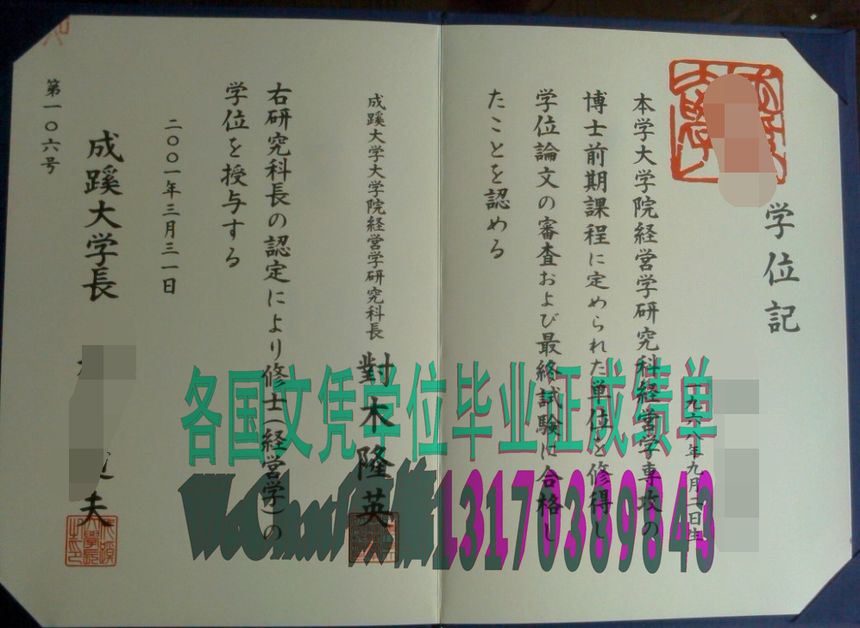 学位記
一九六八年九月二日生
本学大学院経営学研究科経営学専攻の
博士前期課程に定められた単位を修得し
学位論文の審査および最終試験に合格し
たことを認める
成蹊大学大学院経営学研究科長 對木隆英
右研究科長の認定により修士(経営学)の
学位を授与する
二〇〇一年三月三一日
成蹊大学長
夫
第一〇六号
各国文凭学位毕业证成绩单
WeChat/微信13170389843